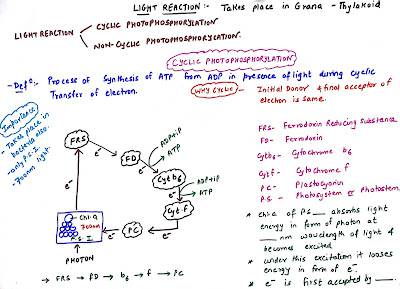 LIGHT REACTION :- Takes place in Grana - Thylakoid
LIGHT REACTION
CYCLIC PHOTOPHOSPHORYLATION
NON-CYCLIC PHOTOPHOSPHORYLATION.
CYCLIC PHOTOPHOSPHORYLATION
- Defⁿ: Process of Synthesis of ATP from ADP in presence of light during cyclic
Transfer of electron.
WHY CYCLIC
- Initial Donor & final acceptor
of electron is same.
Importance
- Takes place in
bacteria also.
- only P.S. I.
- 700nm light.
FRS
e⁻
FD
ADP+iP
ATP
e⁻
Cyt b6
ADP+iP
ATP
e⁻
Cyt f
e⁻
PC
e⁻
e⁻
Chl.a
700nm
P.S. I
PHOTON
→ FRS → FD → b6 → f → PC
FRS- Ferrodoxin Reducing Substance
FD- Ferrodoxin
Cytb6- Cytochrome b6
Cytf- Cytochrome f
PC- Plastocyanin
P.S- Photosystem or Photosystem.
* Chl.a of P.S __ absorbs light
energy in form of photon at
___ nm wavelength of light &
becomes excited
* under this excitation it looses
energy in form of e⁻.
* e⁻ is first accupted by ___.